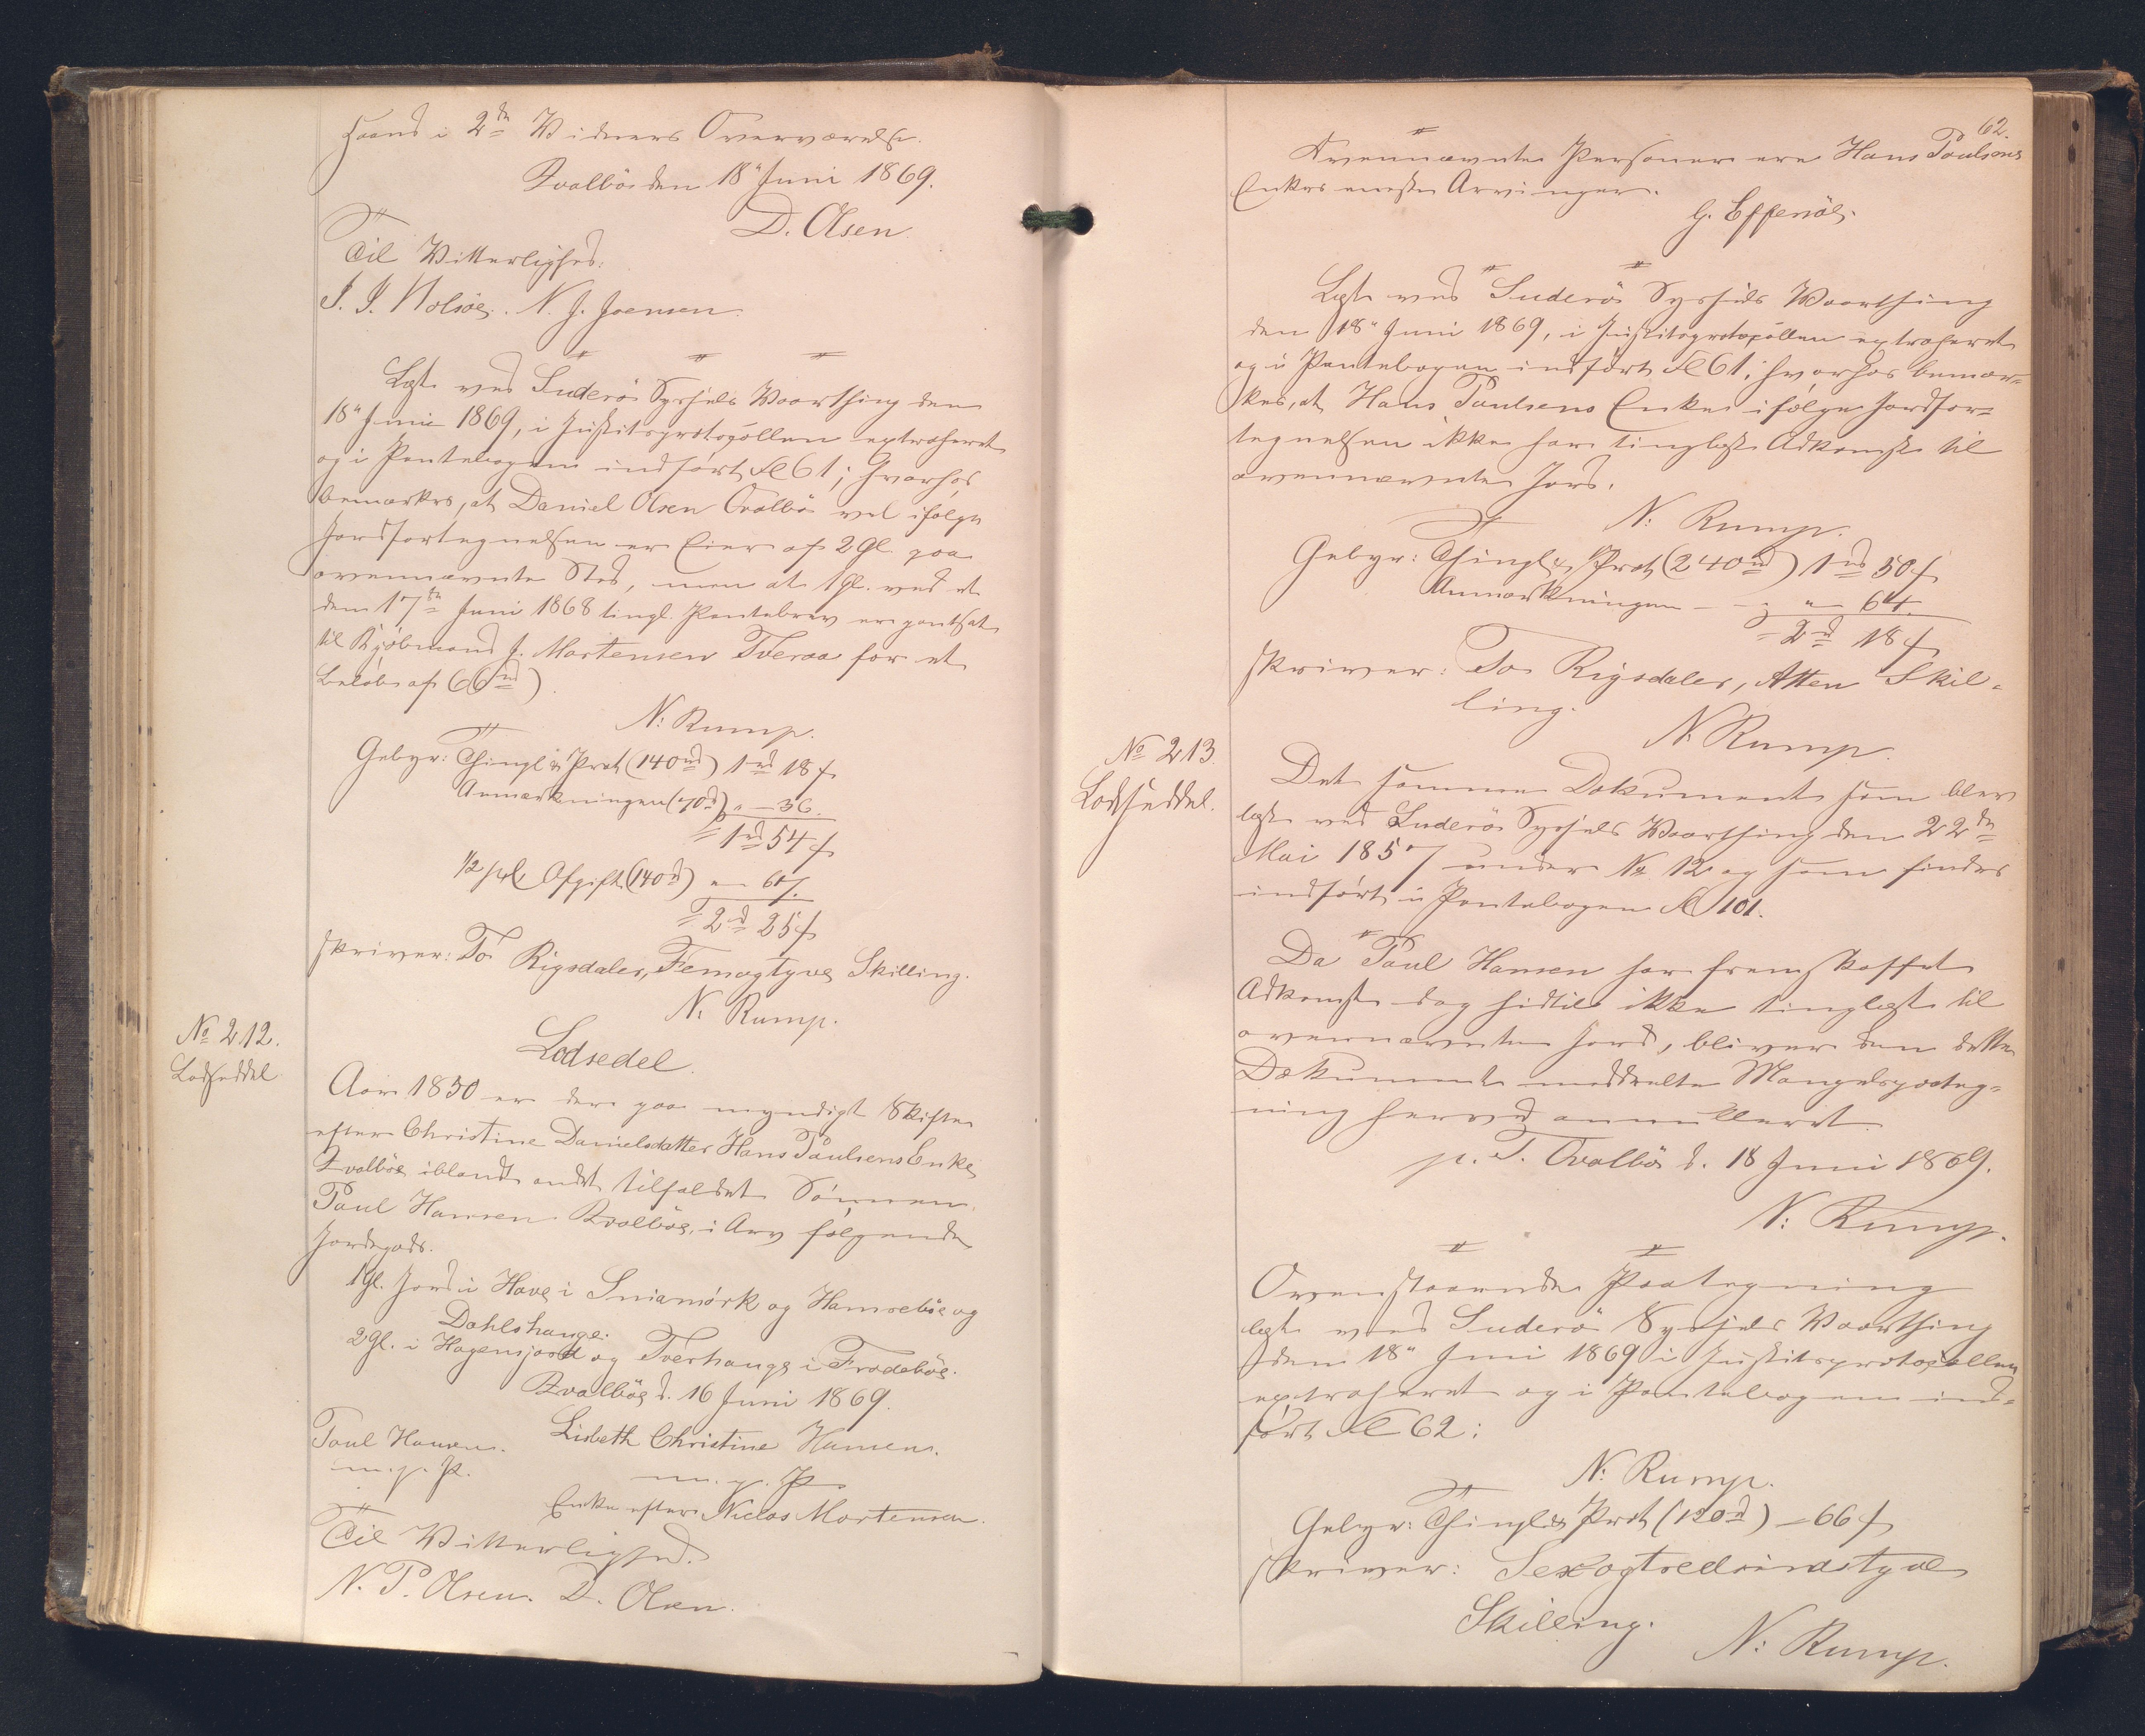 Haand i 2de Vidners Overværelse.
Qvalböe den 18" Juni 1869.
D. Olsen.
Til Vitterlighed:
J. J. Nolsöe. N. J. Joensen.
Læst ved Suderö Syssels Vaarthing den
18" Juni 1869, i Justitsprotopollen extraheret
og i Pantebogen indført Fol 61; hvorhos
bemærkes, at Daniel Olsen Qvalbö vel ifølge
Jordfortegnelsen er Eier af 2 Gl. paa
ovennævnte Sted, men at 1 Gl. ved et
den 17de Juni 1868 tingl. Pantebrev er pantsat
til Kjöbmand J. Mortensen Tveraa for et
Beløb af 66 rd)
N: Rump.
Gebyr: Thingl & Prot (140 rd) 1 rd 18 s
Anmærkningen (70 rd) " - 36.
= 1 rd 54 s
1/2 pCt Afgift (140 rd) " 67.
= 2 rd 25 s
skriver: To Rigsdaler, Femogtyve Skilling.
N. Rump.
No 212.
Lodseddel
Lodsedel.
Aar 1850 er der paa myndigt Skifte
efter Christine Danielsdatter Hans Paulsens Enke
Qvalböe iblandt andet tilfaldet Sønnen
Paul Hansen Qvalböe, i Arv følgende
Jordegods.
1 Gl. Jord i Hove i Sniamörk og Hamreböe og
Dahlshauge.
2 Gl. i Hagensjord og Tverhauge i Frodeböe.
Qvalböe d. 16 Juni 1869.
Paul Hansen. Lisbeth Christine Hansen.
m. p. P. m. p. P
Enke efter Niclas Mortensen.
Til Vitterlighed.
N. P. Olsen. D. Olsen.
62.
Ovennævnte Personer ere Hans Poulsens
Enkes eneste Arvinger.
G. Effersöe.
Læst ved Suderö Syssels Vaarthing
den 18" Juni 1869, i Justitsprotopollen extraheret
og i Pantebogen indført Fol 61; hvorhos bemær-
kes, at Hans Paulsens Enke ifølge Jordfor=
tegnelsen ikke har tinglæst Adkomst til
ovennævnte Jord.
N: Rump.
Gebyr: Thingl & Prot (240 rd) 1 rd 50 s
Anmærkningen - - " - 64.
= 2 rd 18 s
skriver: To Rigsdaler, Atten Skil-
ling.
N. Rump.
No 213.
Lodseddel.
Det samme Dokument som blev
læst ved Suderö Syssels Vaarthing den 22de
Mai 1857 under No 12 og som findes
indført i Pantebogen Fol 101.
Da Paul Hansen har fremskaffet
Adkomst dog hidtil ikke tinglæst til
ovennævnte Jord, bliver den dette
Dokument meddeelte Mangelspaateg-
ning herved annulleret.
p. T. Qvalbö d. 18 Juni 1869.
N: Rump.
Ovenstaaende Paategning
læst ved Suderö Syssels Vaarthing
den 18" Juni 1869 i Justitsprotopollen
extraheret og i Pantebogen ind-
ført Fol 62:
N: Rump.
Gebyr: Thingl & Prot (120 rd) - 66 s
skriver: Sexogtredsindstyve
Skilling.
N: Rump.